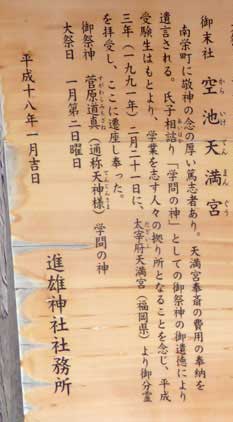 御末社 空池天満宮
からいけてんまんぐう
南栄町に敬神の念の厚い篤志者あり。天満宮奉斎の費用の奉納を
遺言される。氏子相諮り「学問の神」としての御祭神の御遺徳により
受験生はもとより、学業を志す人々の拠り所となることを念じ、平成
三年(一九九一年)二月二十一日に、太宰府天満宮(福岡県)より御分霊
を拝受し、ここに遷座し奉った。
御祭神 菅原道真(通称天神様)学問の神
すがわらみちざね
大祭日 一月第二日曜日
平成十八年一月吉日
進雄神社社務所